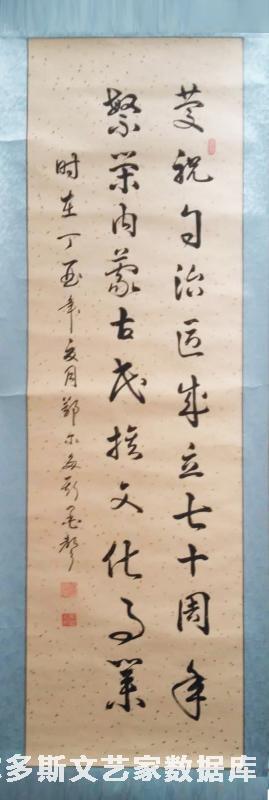 庆祝自治区成立七十周年
繁荣内蒙古民族文化事业
时在丁酉年夏月鄂尔多斯墨馨
尔多斯文艺家数据库